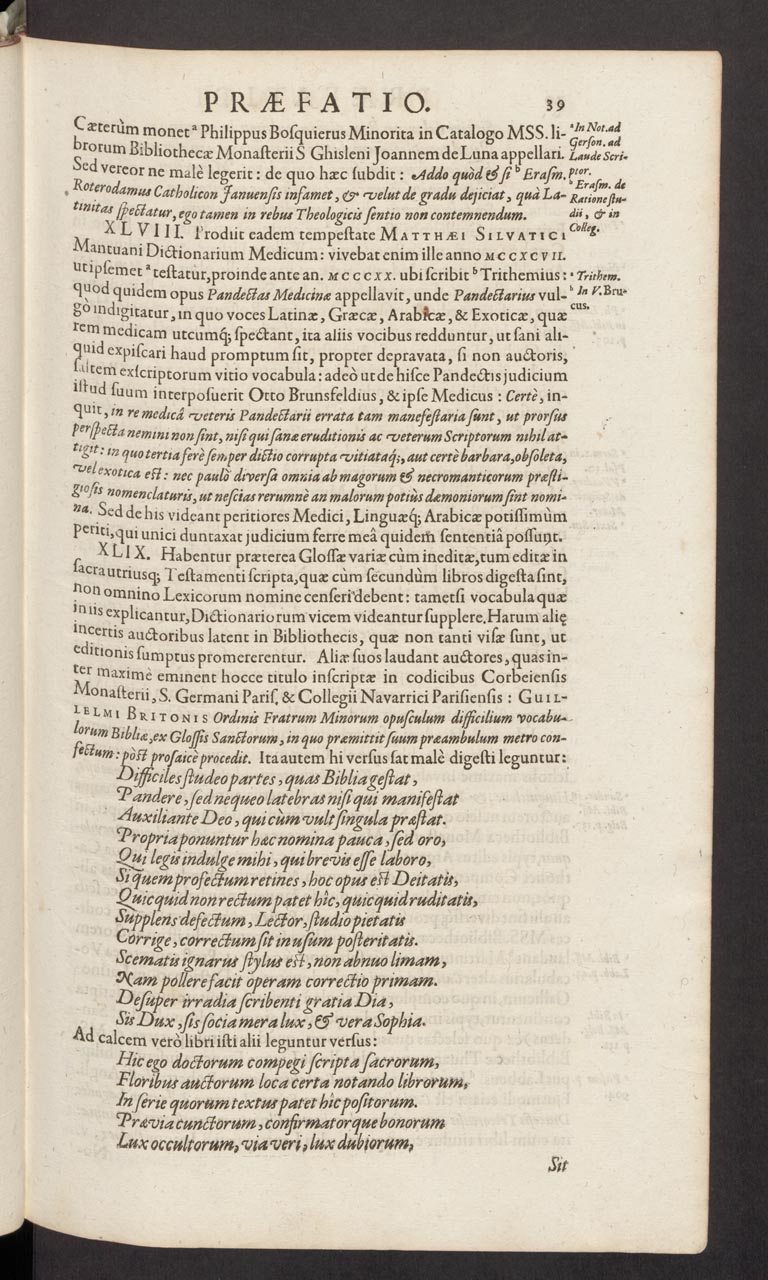 PRÆFATIO. 39
Cæterùm monet ᵃ Philippus Boſquierus Minorita in Catalogo MSS. li-
brorum Bibliothecæ Monaſterii S Ghisleni Joannem de Luna appellari.
Sed vereor ne malè legerit: de quo hæc ſubdit: Addo quòd & ſi ᵇ Eraſm.
Roterodamus Catholicon Januenſis infamet, & velut de gradu dejiciat, quà La-
tinitas ſpectatur, ego tamen in rebus Theologicis ſentio non contemnendum.
XLVIII. Prodiit eadem tempeſtate MATTHÆI SILVATICI
Mantuani Dictionarium Medicum: vivebat enim ille anno MCCXCVII.
ut ipſemet ᵃ teſtatur, proinde ante an. MCCCXX. ubi ſcribit ᵇ Trithemius:
quod quidem opus Pandectas Medicinæ appellavit, unde Pandectarius vul-
gò indigitatur, in quo voces Latinæ, Græcæ, Arabicæ, & Exoticæ, quæ
rem medicam utcumq; ſpectant, ita aliis vocibus redduntur, ut ſani ali-
quid expiſcari haud promptum ſit, propter depravata, ſi non auctoris,
ſaltem exſcriptorum vitio vocabula: adeò ut de hiſce Pandectis judicium
iſtud ſuum interpoſuerit Otto Brunsfeldius, & ipſe Medicus: Certè, in-
quit, in re medicâ veteris Pandectarii errata tam manefeſtaria ſunt, ut prorſus
perſpecta nemini non ſint, niſi qui ſanæ eruditionis ac veterum Scriptorum nihil at-
tigit: in quo tertia ferè ſemper dictio corrupta vitiataq;, aut certè barbara, obſoleta,
vel exotica eſt: nec paulò diverſa omnia ab magorum & necromanticorum præſti-
gioſis nomenclaturis, ut neſcias rerumnè an malorum potiùs dæmoniorum ſint nomi-
na. Sed de his videant peritiores Medici, Linguæq; Arabicæ potiſſimùm
periti, qui unici duntaxat judicium ferre meâ quidem ſententiâ poſſunt.
XLIX. Habentur præterea Gloſſæ variæ cùm ineditæ, tum editæ in
ſacra utriusq; Teſtamenti ſcripta, quæ cùm ſecundùm libros digeſta ſint,
non omnino Lexicorum nomine cenſeri debent: tametſi vocabula quæ
in iis explicantur, Dictionariorum vicem videantur ſupplere. Harum alię
incertis auctoribus latent in Bibliothecis, quæ non tanti viſæ ſunt, ut
editionis ſumptus promererentur. Aliæ ſuos laudant auctores, quas in-
ter maximè eminent hocce titulo inſcriptæ in codicibus Corbeienſis
Monaſterii, S. Germani Pariſ. & Collegii Navarrici Pariſienſis: GUIL-
LELMI BRITONIS Ordinis Fratrum Minorum opuſculum difficilium vocabu-
lorum Bibliæ, ex Gloſſis Sanctorum, in quo præmittit ſuum præambulum metro con-
fectum: pòſt proſaicè procedit. Ita autem hi verſus ſat malè digeſti leguntur:
Difficiles ſtudeo partes, quas Biblia geſtat,
Pandere, ſed nequeo latebras niſi qui manifeſtat
Auxiliante Deo, qui cùm vult ſingula præſtat.
Propria ponuntur hæc nomina pauca, ſed oro,
Qui legis indulge mihi, qui brevis eſſe laboro,
Si quem profectum retines, hoc opus eſt Deitatis,
Quicquid non rectum patet hîc, quicquid ruditatis,
Supplens defectum, Lector, ſtudio pietatis
Corrige, correctum ſit in uſum poſteritatis.
Scematis ignarus ſtylus eſt, non abnuo limam,
Nam pollere facit operam correctio primam.
Deſuper irradia ſcribenti gratia Dia,
Sis Dux, ſis ſocia mera lux, & vera Sophia.
Ad calcem verò libri iſti alii leguntur verſus:
Hic ego doctorum compegi ſcripta ſacrorum,
Floribus auctorum loca certa notando librorum,
In ſerie quorum textus patet hîc poſitorum.
Prævia cunctorum, confirmatorque bonorum
Lux occultorum, via veri, lux dubiorum,
Sit
ᵃ In Not. ad
Gerſon. ad
Laude Scri-
ptor.
ᵇ Eraſm. de
Ratione ſtu-
dii, & in
Colleg.
ᵃ Trithem.
ᵇ In V. Bru-
cus.